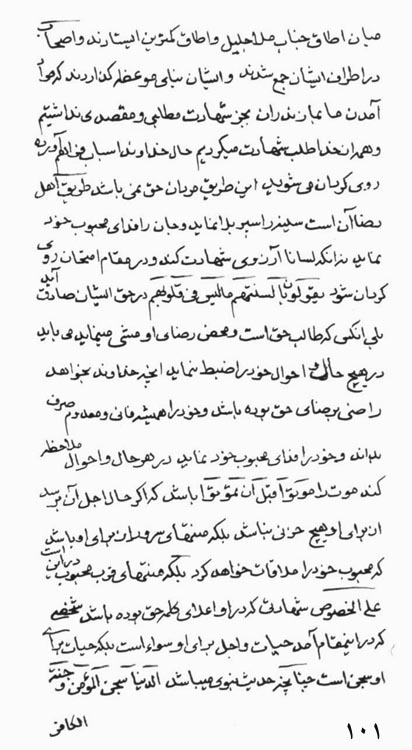 میان اطاق جناب ملا جلیل و اطاق کمترین ایستادند و اصحاب
در اطراف ایشان جمع شدند و ایشان بنای موعظه گذاردند که مراد
آمدن ما بمازندران بجز شهادت مطلبی و مقصدی نداشتیم
و همه از خدا طلب شهادت میکردیم حال خداوند اسباب فراهم آورده
روی گردان می شوید این طریق مردان حق نمی باشد طریق اهل
رضا آن است سینه را سپر بلا نماید و جان را فدای محبوب خود
نماید نه آنکه لسانا آرزوی شهادت کند و در مقام امتحان روی
گردان شود یقولون بالسنتهم مالیس فی قلوبهم در حق ایشان صادق آید
بلی آنکس که طالب حق است و محض رضای او مشی مینماید می باید
در هیچ حال احوال خود را ضبط ننماید آنچه خداوند بخواهد
راضی برضای حق بوده باشد و خود را همیشه فانی و معدوم صرف
بداند و خود را فدای محبوب خود نماید در هر حال و احوال ملاحظه
کند موت را موتوا قبل ان تموتوا باشد که اگر حال اجل آن برسد
از برای او هیچ حزنی نباشد بلکه منتهای سرور از برای او باشد
که محبوب خود را ملاقات خواهد کرد بلکه منتهای قرب محبوب در این است
علی الخصوص شهادتی که در اعلای کلمه حق بوده باشد شخصی
که در اینمقام آمد حیات و اجل برای او سواء است بلکه حیات برای
او سجن است چنانچه حدیث نبوی میباشد الدنیا سجن المؤمن و جنة
الکافر
۱۰۱